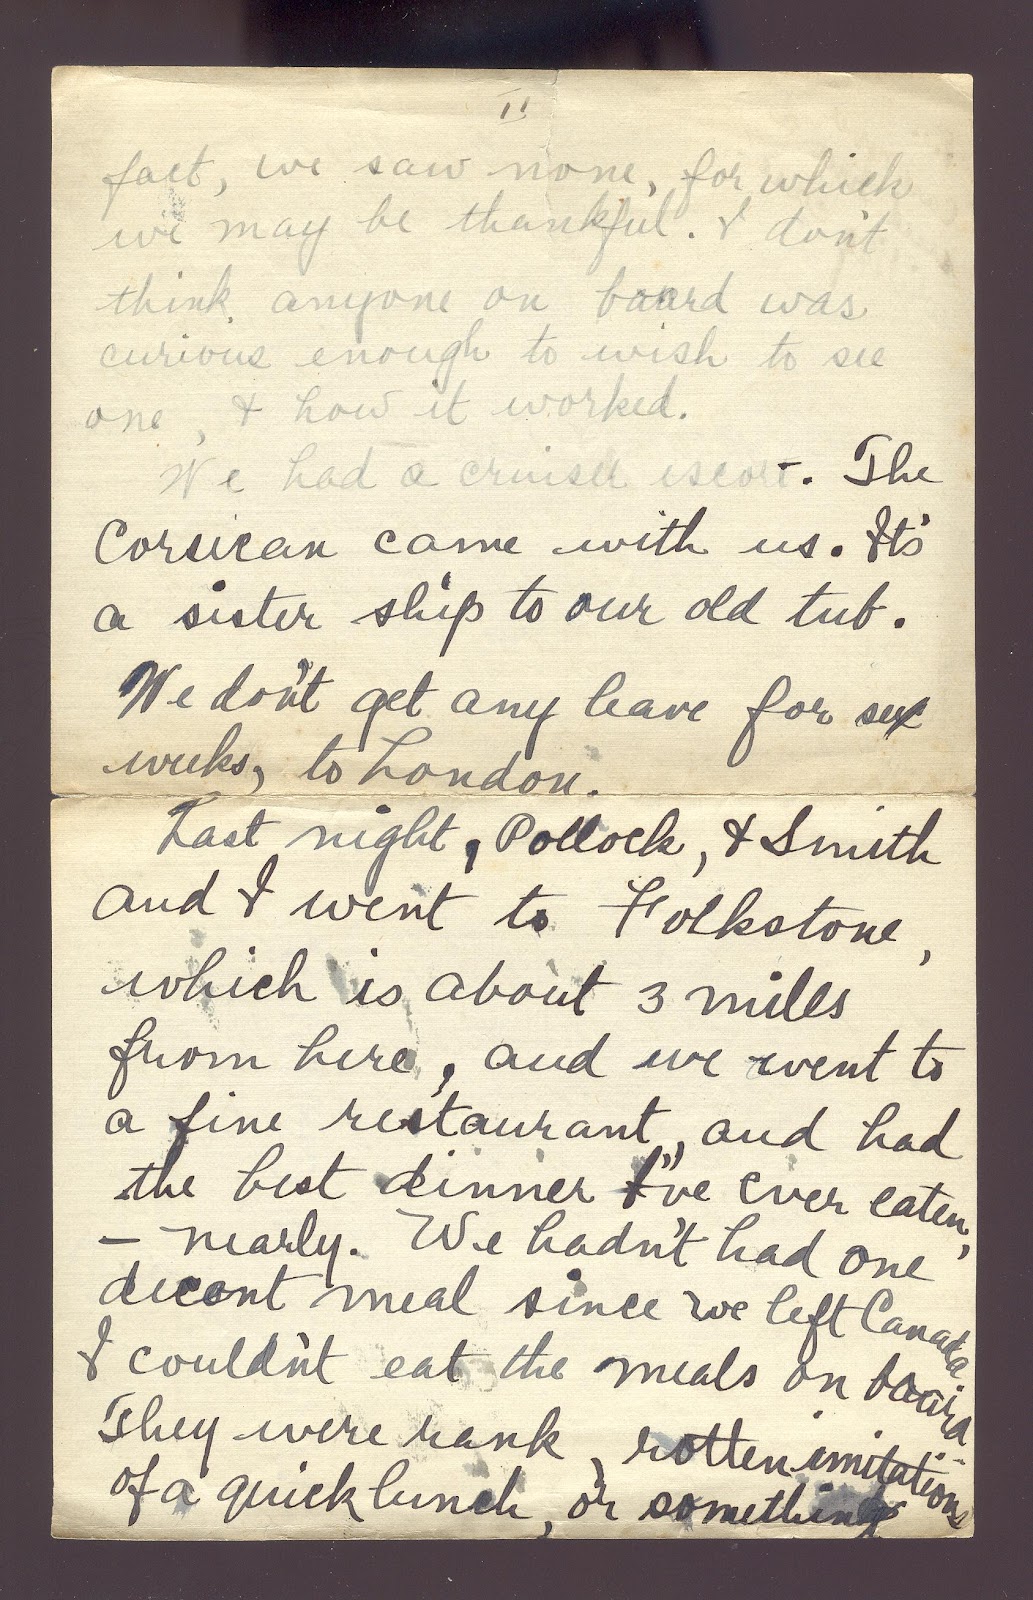 II
fact, we saw none, for which
we may be thankful. I don't
think anyone on board was
curious enough to wish to see
one, & how it worked.
We had a cruiser escort. The
Corsican came with us. It's
a sister ship to our old tub.
We don't get any leave for six
weeks, to London.
Last night, Pollock, & Smith
and I went to Folkstone,
which is about 3 miles
from here, and we went to
a fine restaurant, and had
the best dinner I've ever eaten,
– nearly. We hadn't had one
decent meal since we left Canada
I couldn't eat the meals on board
They were rank, rotten imitations
of a quick lunch, or something